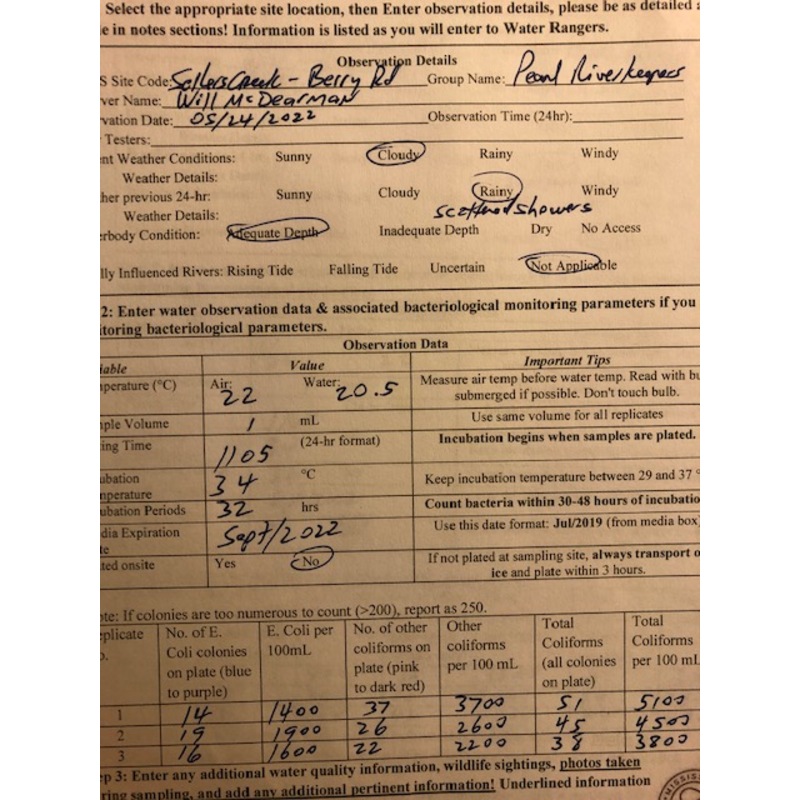 Select the appropriate site location, then Enter observation details, please be as detailed a
e in notes sections! Information is listed as you will enter to Water Rangers.
Observation Details
S Site Code: Sellers Creek - Berry Rd Group Name: Pearl Riverkeepers
ver Name: Will McDearman
vation Date: 05/24/2022 Observation Time (24hr):
Testers:
nt Weather Conditions: Sunny Cloudy Rainy Windy
Weather Details:
her previous 24-hr: Sunny Cloudy Rainy Windy
Weather Details: scattered showers
rbody Condition: Adequate Depth Inadequate Depth Dry No Access
lly Influenced Rivers: Rising Tide Falling Tide Uncertain Not Applicable
2: Enter water observation data & associated bacteriological monitoring parameters if you
itoring bacteriological parameters.
Observation Data
iable Value Important Tips
perature (°C) Air: 22 Water: 20.5 Measure air temp before water temp. Read with bu
submerged if possible. Don't touch bulb.
ple Volume 1 mL Use same volume for all replicates
ing Time 1105 (24-hr format) Incubation begins when samples are plated.
ubation
nperature 34 °C Keep incubation temperature between 29 and 37 °
ubation Periods 32 hrs Count bacteria within 30-48 hours of incubatio
dia Expiration
te Sept/2022 Use this date format: Jul/2019 (from media box
ted onsite Yes No If not plated at sampling site, always transport o
ice and plate within 3 hours.
ote: If colonies are too numerous to count (>200), report as 250.
eplicate No. of E. E. Coli per No. of other Other Total Total
o. Coli colonies 100mL coliforms on coliforms Coliforms Coliforms
on plate (blue plate (pink per 100 mL (all colonies per 100 mL
to purple) to dark red) on plate)
1 14 1400 37 3700 51 5100
2 19 1900 26 2600 45 4500
3 16 1600 22 2200 38 3800
ep 3: Enter any additional water quality information, wildlife sightings, photos taken
ring sampling, and add any additional pertinent information! Underlined information
MISSIS